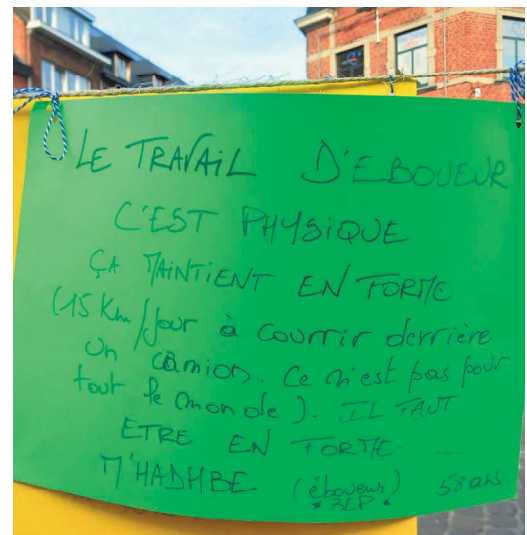 LE TRAVAIL D'EBOUEUR
C'EST PHYSIQUE
ÇA MAINTIENT EN FORME
(15 Km/Jour à courrir derrière
un camion. Ce n'est pas pour
tout le monde). IL FAUT
ETRE EN FORME
M'HADHBE (éboueur) 58 ans
* BEP *